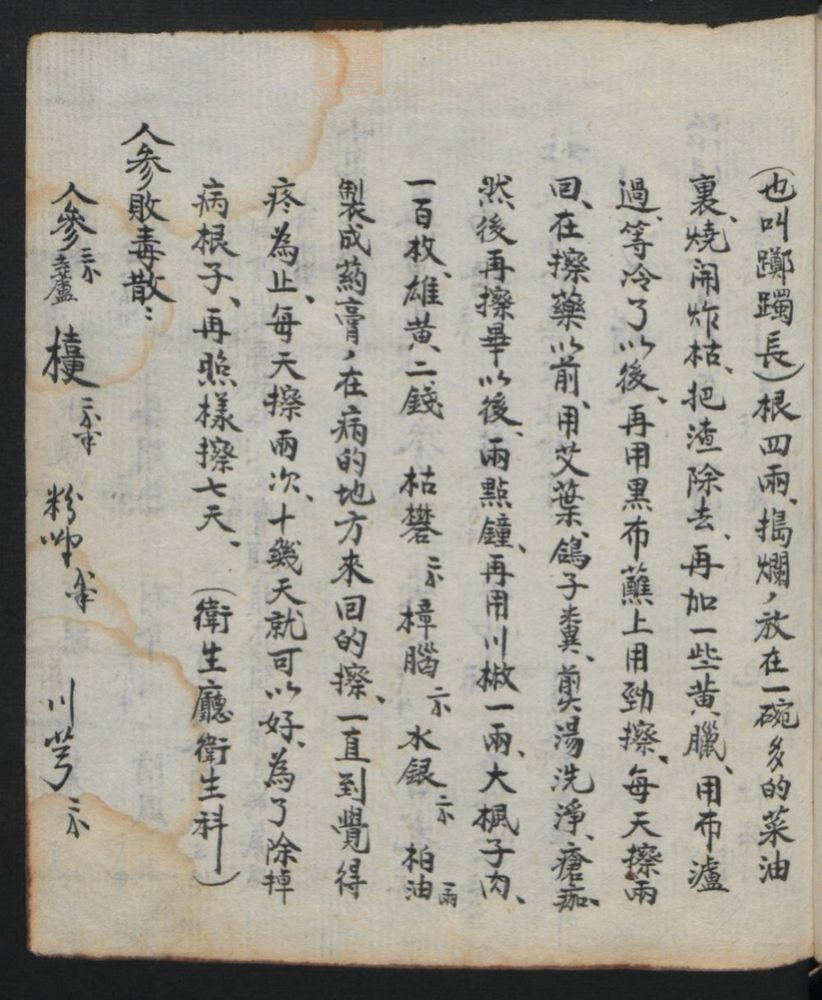 (也叫躑躅長)根四兩、搗爛，放在一碗多的菜油
裏、燒開炸枯、把渣除去、再加一些黄臘、用布濾
過、等冷了以後、再用黑布蘸上用勁擦、每天擦兩
回、在擦藥以前、用艾葉、鴿子糞、煎湯洗淨、瘡痂、
然後再擦畢以後、兩點鐘、再用川椒一兩、大楓子肉、
一百枚、雄黄、二錢 枯礬 樟腦 水銀 柏油 兩
製成葯膏，在病的地方來回的擦、一直到覺得
疼為止、每天擦兩次、十幾天就可以好、為了除掉
病根子、再照樣擦七天、(衛生廳衛生科)
人参敗毒散：
人參 蘆 粉 川芎